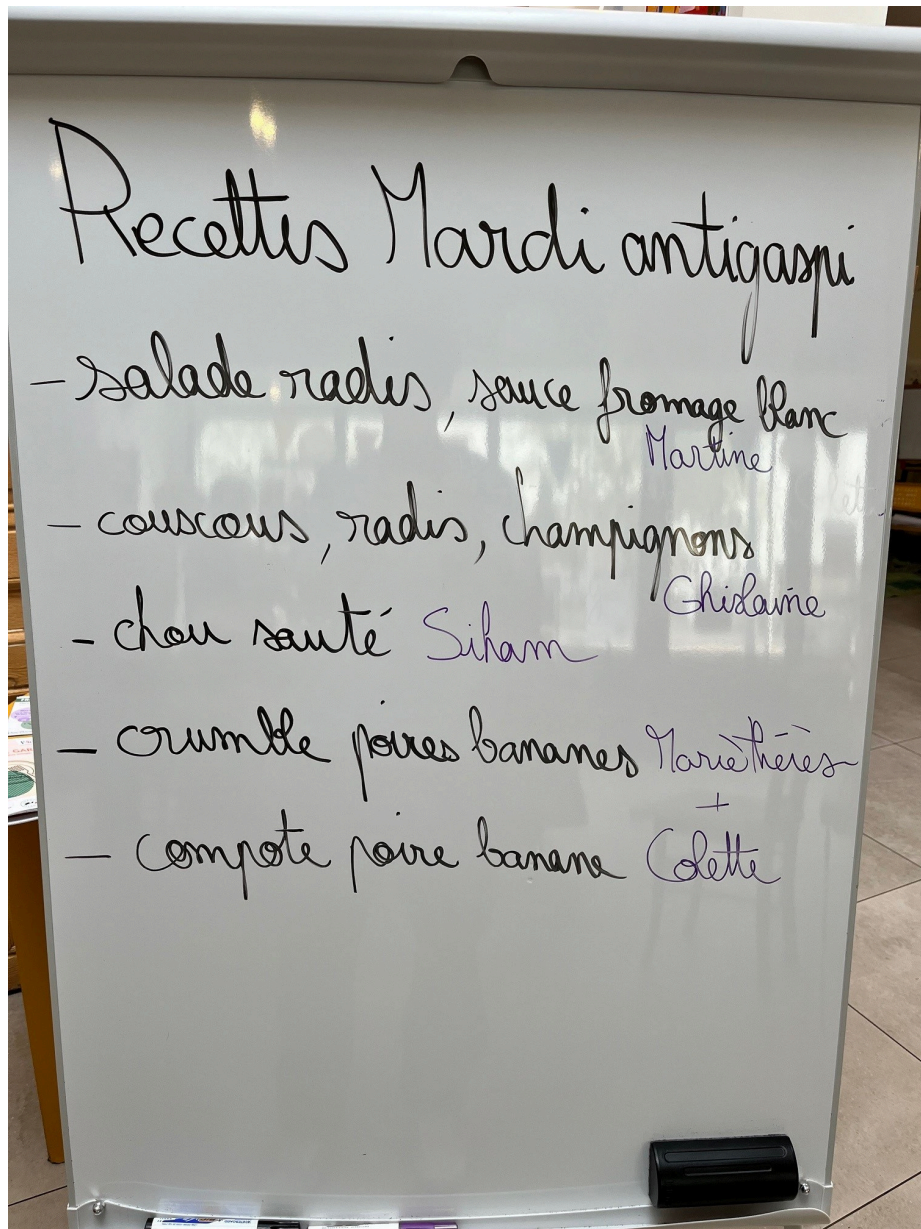 Recettes Mardi antigaspi
- salade radis, sauce fromage blanc
Martine
- couscous, radis, champignons
Ghislaine
- chou sauté Siham
- crumble poires bananes Marie Thérès
+
- compote poire banane Colette